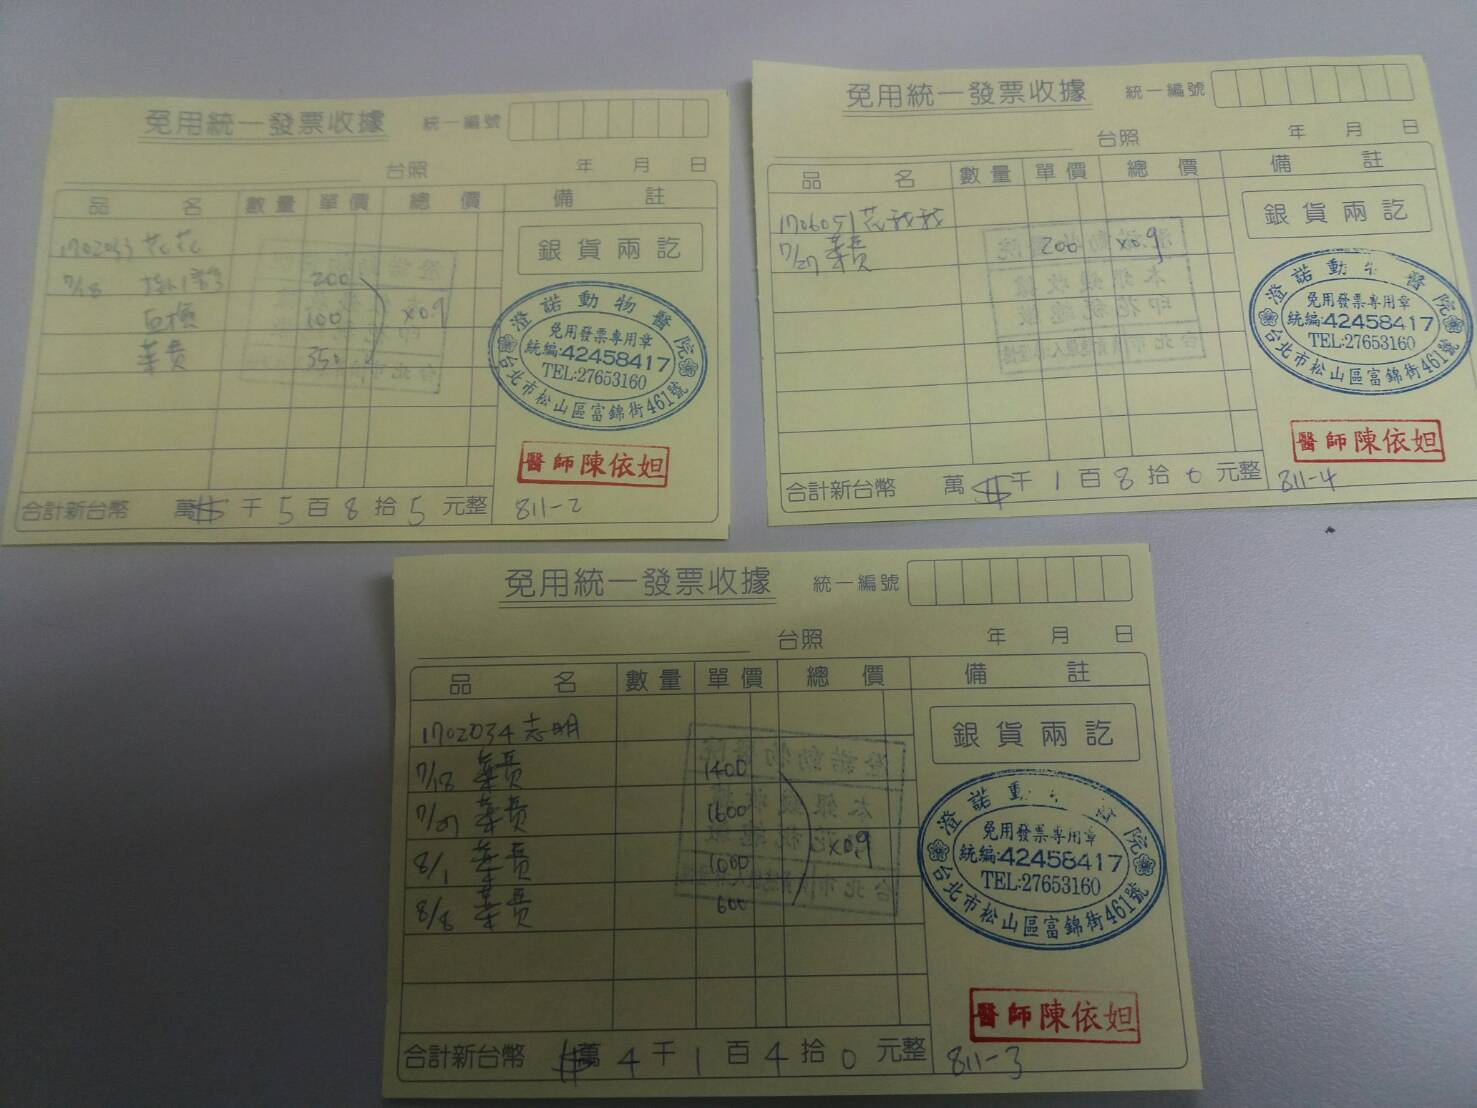 免用統一發票收據 統一編號
台照 年 月 日
品名 數量 單價 總價 備註
1702033 花花
7/18 掛號 200
血檢 100 x0.9
藥費 350
銀貨兩訖
澄諾動物醫院
免用發票專用章
統編:42458417
TEL:27653160
台北市松山區富錦街461號
醫師陳依妲
合計新台幣 萬 千 5 百 8 拾 5 元整 811-2
免用統一發票收據 統一編號
台照 年 月 日
品名 數量 單價 總價 備註
1706051
7/27 藥費 200 x0.9
銀貨兩訖
澄諾動物醫院
免用發票專用章
統編:42458417
TEL:27653160
台北市松山區富錦街461號
醫師陳依妲
合計新台幣 萬 千 1 百 8 拾 0 元整 811-4
免用統一發票收據 統一編號
台照 年 月 日
品名 數量 單價 總價 備註
1702034 志明
7/18 藥費 1400
藥費 1600
8/1 藥費 1000 x0.9
8/8 藥費 600
銀貨兩訖
澄諾動 院
免用發票專用章
統編:42458417
TEL:27653160
台北市松山區富錦街461號
醫師陳依妲
合計新台幣 萬 4 千 1 百 4 拾 0 元整 811-3